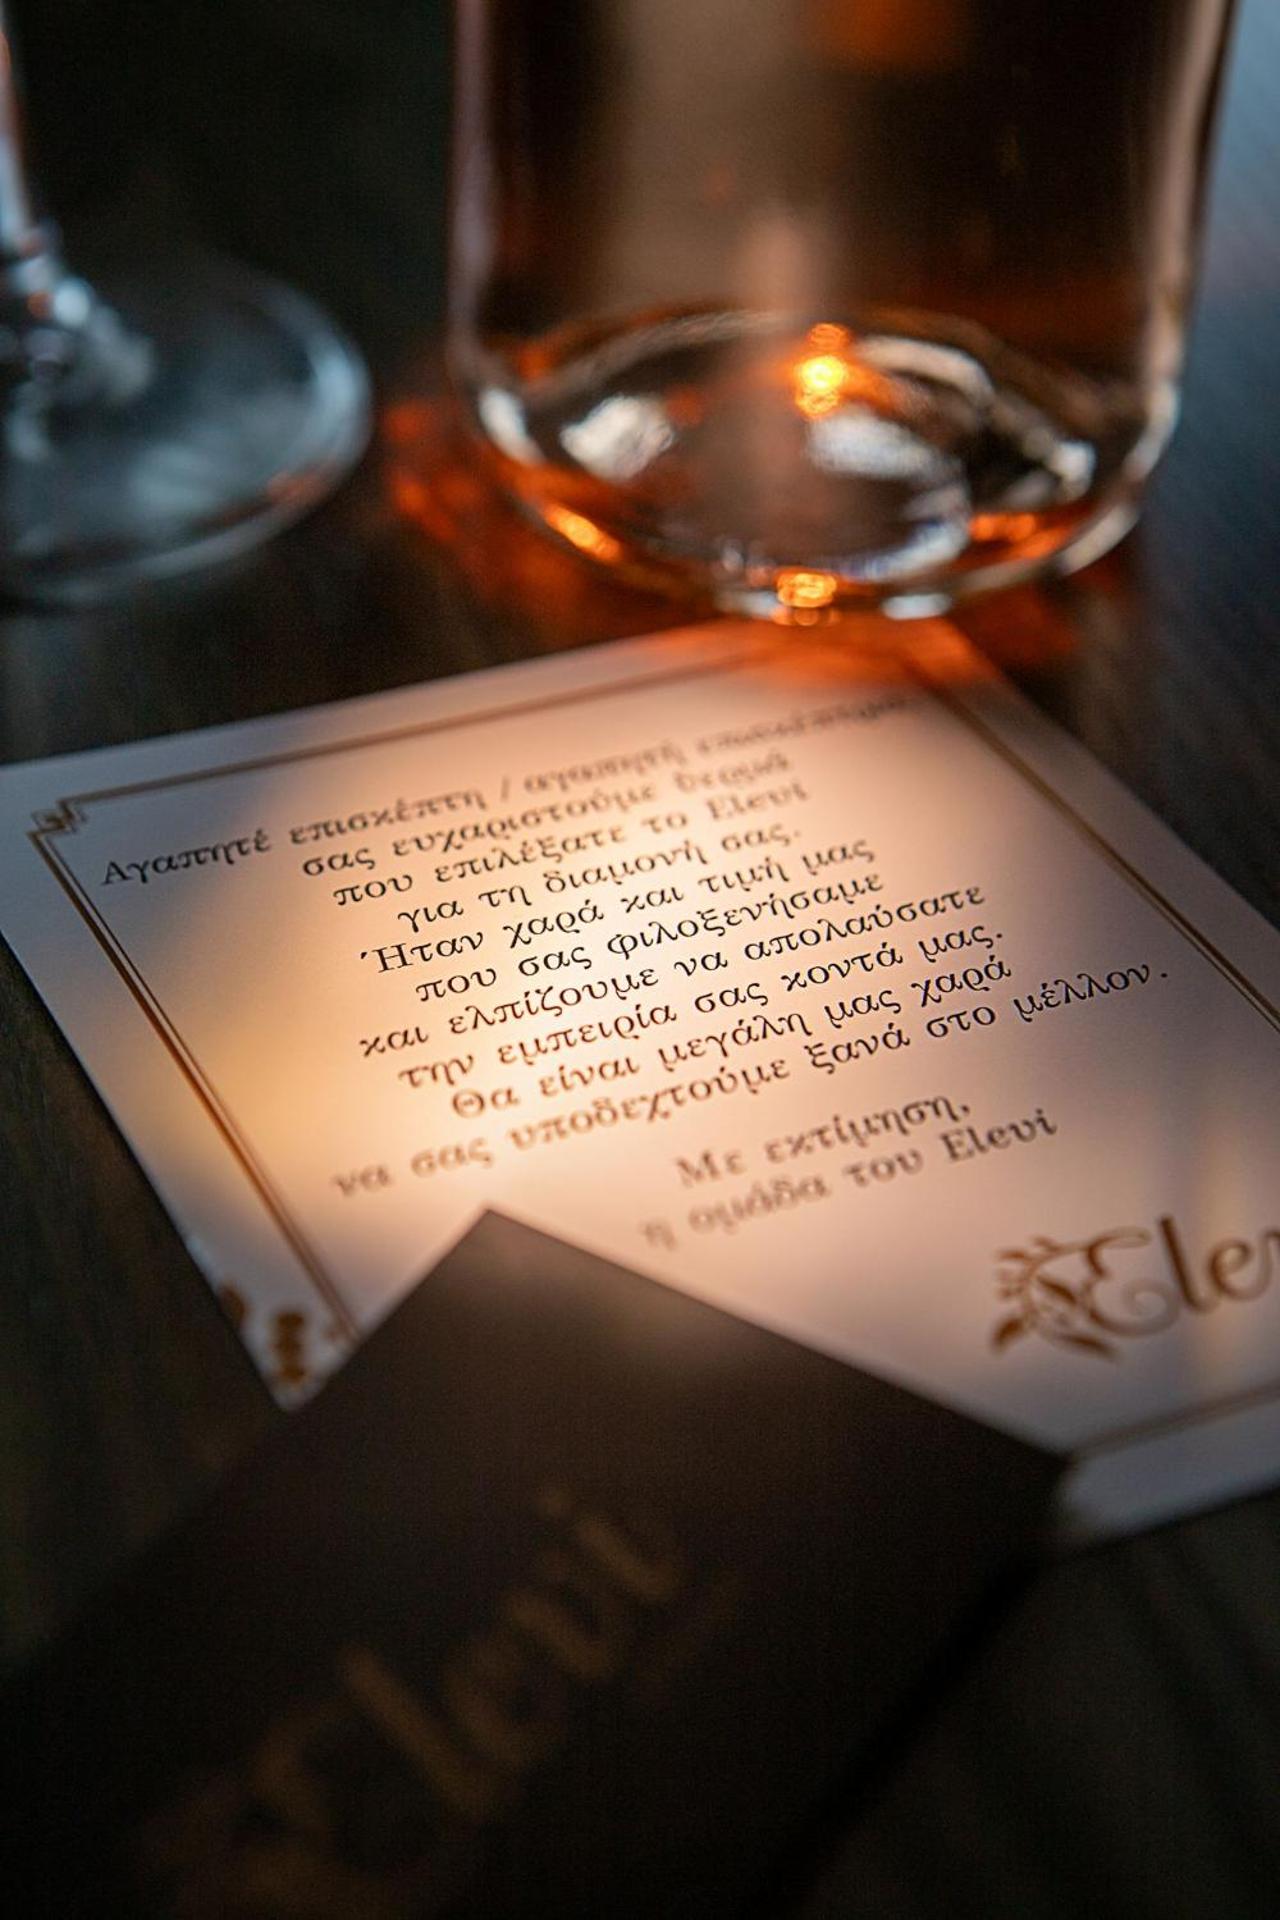 Αγαπητέ επισκέπτη / αγαπητή επισκέπτρια,
σας ευχαριστούμε θερμά
που επιλέξατε το Elevi
για τη διαμονή σας.
Ήταν χαρά και τιμή μας
που σας φιλοξενήσαμε
και ελπίζουμε να απολαύσατε
την εμπειρία σας κοντά μας.
Θα είναι μεγάλη μας χαρά
να σας υποδεχτούμε ξανά στο μέλλον.
Με εκτίμηση,
η ομάδα του Elevi
Elev
Elevi